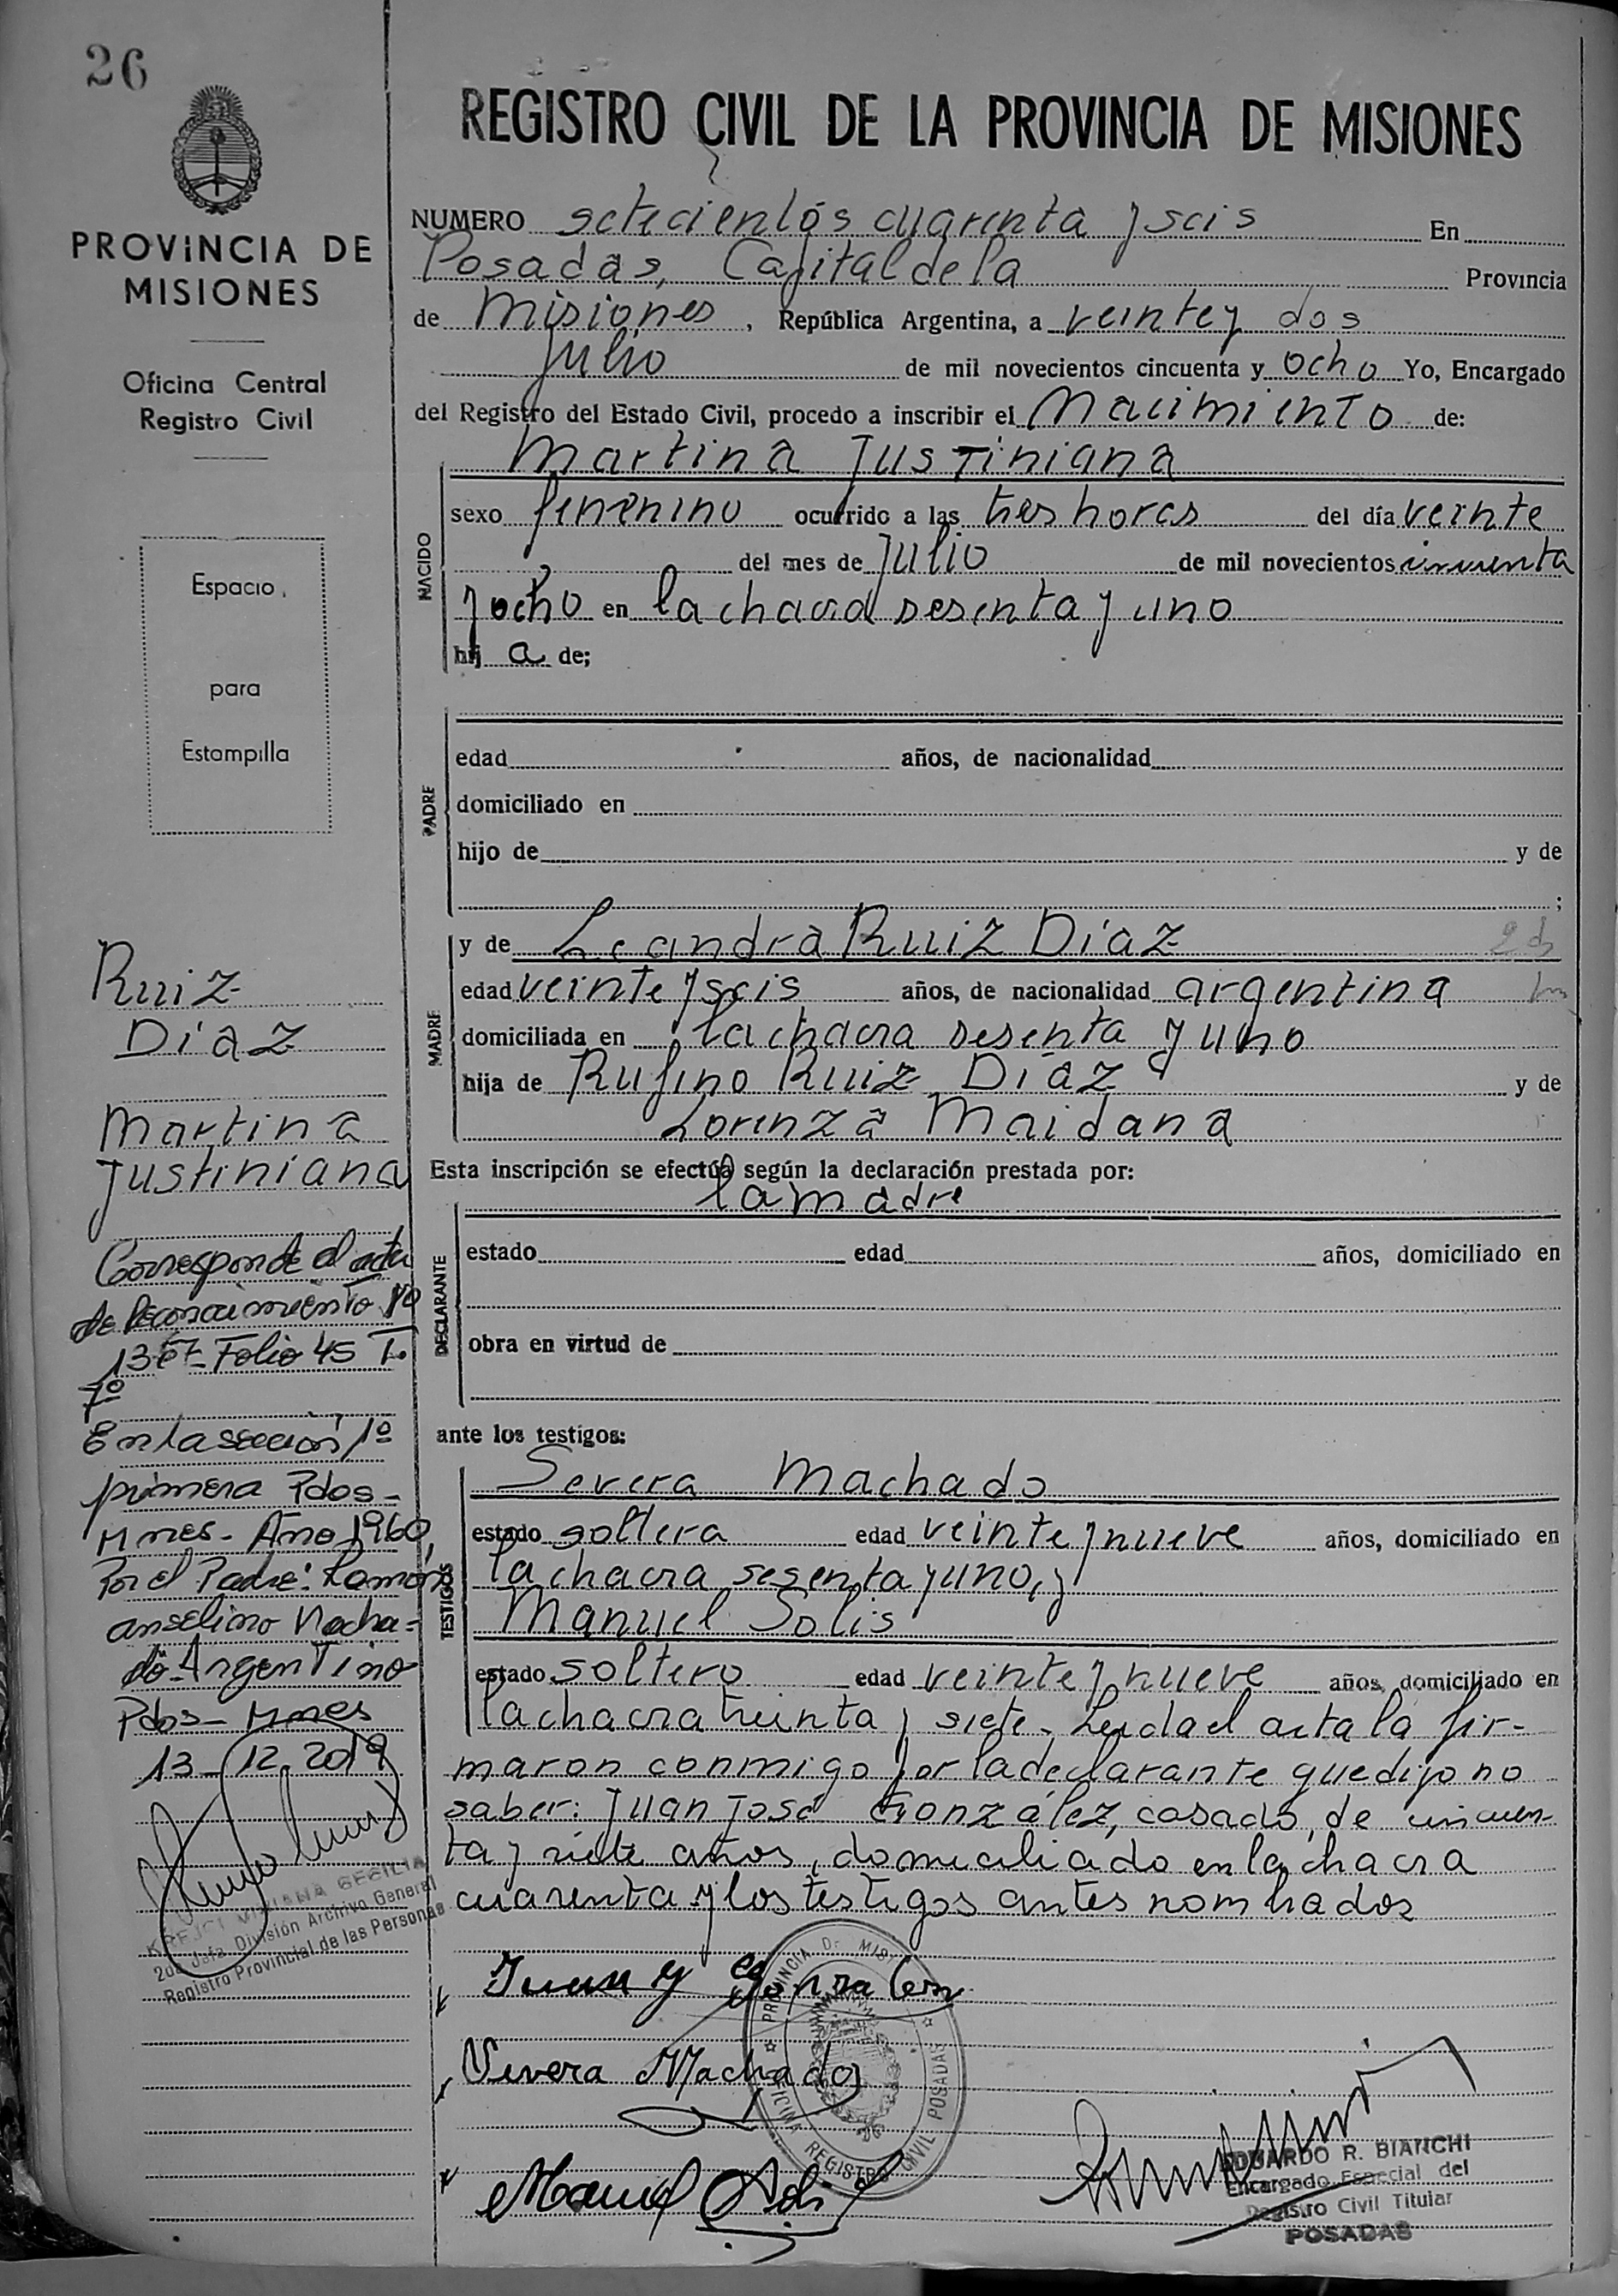 26
REGISTRO CIVIL DE LA PROVINCIA DE MISIONES
PROVINCIA DE
MISIONES
Oficina Central
Registro Civil
Espacio
para
Estampilla
NUMERO setecientos cuarenta y seis En
Posadas, Capital de la Provincia
de Misiones, República Argentina, a veinte y dos
Julio de mil novecientos cincuenta y ocho Yo, Encargado
del Registro del Estado Civil, procedo a inscribir el Nacimiento de:
NACIDO
Martina Justiniana
sexo femenino ocurrido a las tres horas del día veinte
del mes de Julio de mil novecientos cincuenta
y ocho en la chacra sesenta y uno
hij a de;
PADRE
edad años, de nacionalidad
domiciliado en
hijo de y de
;
MADRE
y de Leandra Ruiz Díaz
edad veinte y seis años, de nacionalidad argentina
domiciliada en la chacra sesenta y uno
hija de Rufino Ruiz Díaz y de
Lorenza Maidana
Esta inscripción se efectúa según la declaración prestada por:
DECLARANTE
la madre
estado edad años, domiciliado en
obra en virtud de
ante los testigos:
TESTIGOS
Severa Machado
estado soltera edad veinte y nueve años, domiciliado en
la chacra sesenta y uno, y
Manuel Solis
estado soltero edad veinte y nueve años, domiciliado en
la chacra treinta y siete. Leida el acta la fir-
maron conmigo por la declarante que dijo no
saber: Juan José González, casado, de cincuen-
ta y siete años, domiciliado en la chacra
cuarenta y los testigos antes nombrados
Ruiz
Díaz
Martina
Justiniana
Corresponde el acta
de Reconocimiento Nº
Folio 45 T.
7º
En la sección 1º
primera Pdos-
Mnes- Año 1960,
Por el Padre: Ramón
anselmo Macha-
do- Argentino
Pdos- Mnes
13-12-2019
KREJCI VIVIANA CECILIA
2da Jefa División Archivo General
Registro Provincial de las Personas
Juan J Gonzalez
Severa Machado
Manuel Solis
PROVINCIA DE MISIONES
OFICINA REGISTRO CIVIL POSADAS
EDUARDO R. BIANCHI
Encargado Especial del
Registro Civil Titular
POSADAS